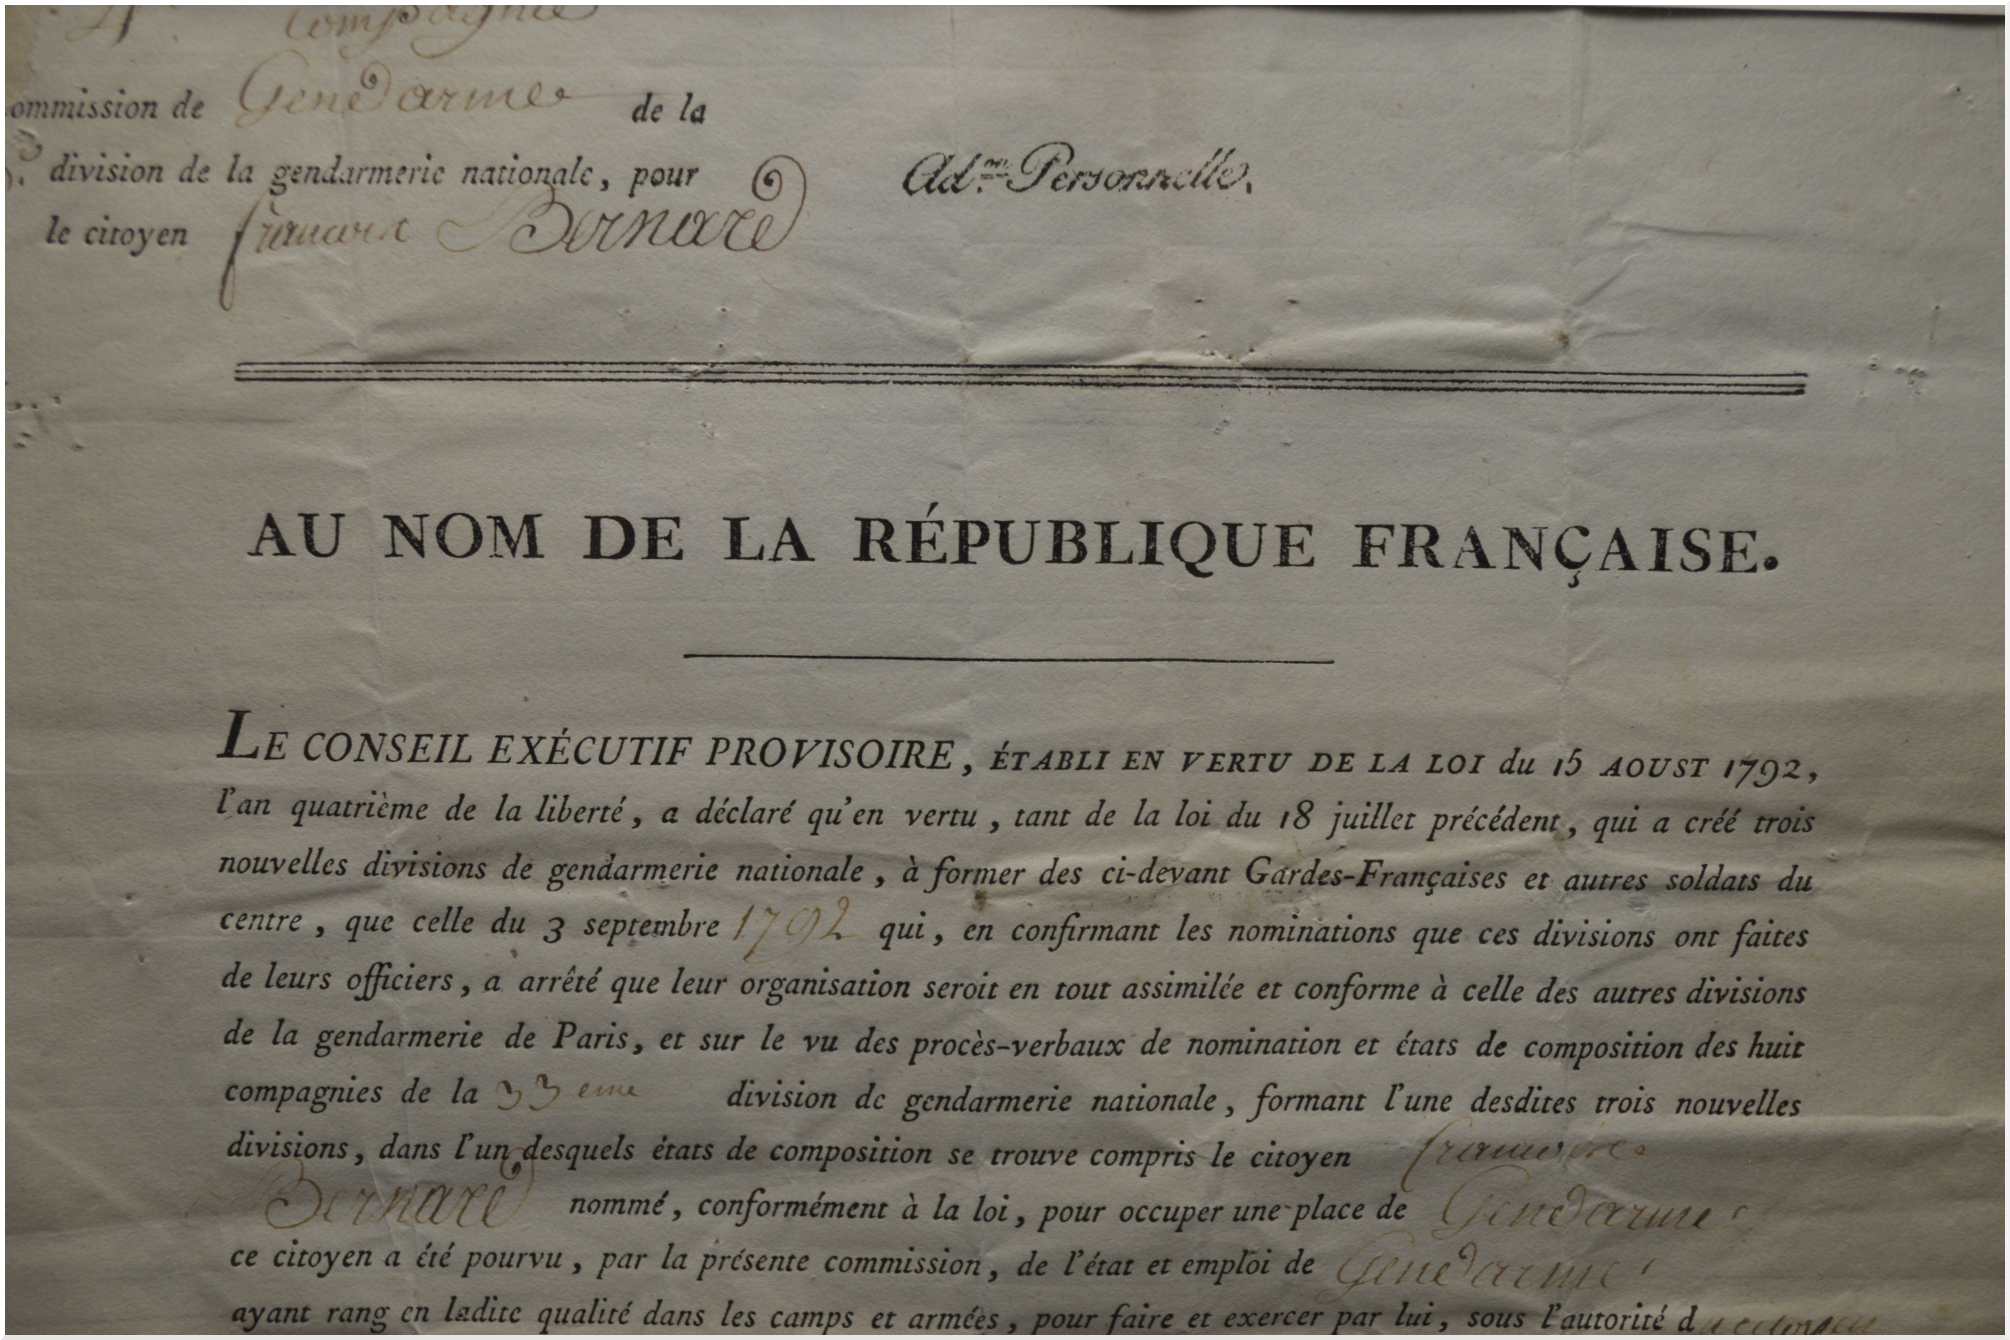 4e Compagnie
ommission de Gendarme de la
division de la gendarmerie nationale, pour
le citoyen françois Bernard
Ad.on Personnelle.
AU NOM DE LA RÉPUBLIQUE FRANÇAISE.
LE CONSEIL EXÉCUTIF PROVISOIRE, ÉTABLI EN VERTU DE LA LOI du 15 AOUST 1792,
l'an quatrième de la liberté, a déclaré qu'en vertu, tant de la loi du 18 juillet précédent, qui a créé trois
nouvelles divisions de gendarmerie nationale, à former des ci-devant Gardes-Françaises et autres soldats du
centre, que celle du 3 septembre 1792 qui, en confirmant les nominations que ces divisions ont faites
de leurs officiers, a arrêté que leur organisation seroit en tout assimilée et conforme à celle des autres divisions
de la gendarmerie de Paris, et sur le vu des procès-verbaux de nomination et états de composition des huit
compagnies de la 33eme division de gendarmerie nationale, formant l'une desdites trois nouvelles
divisions, dans l'un desquels états de composition se trouve compris le citoyen françois
Bernard nommé, conformément à la loi, pour occuper une place de Gendarme
ce citoyen a été pourvu, par la présente commission, de l'état et emploi de Gendarme
ayant rang en ladite qualité dans les camps et armées, pour faire et exercer par lui, sous l'autorité du citoyen